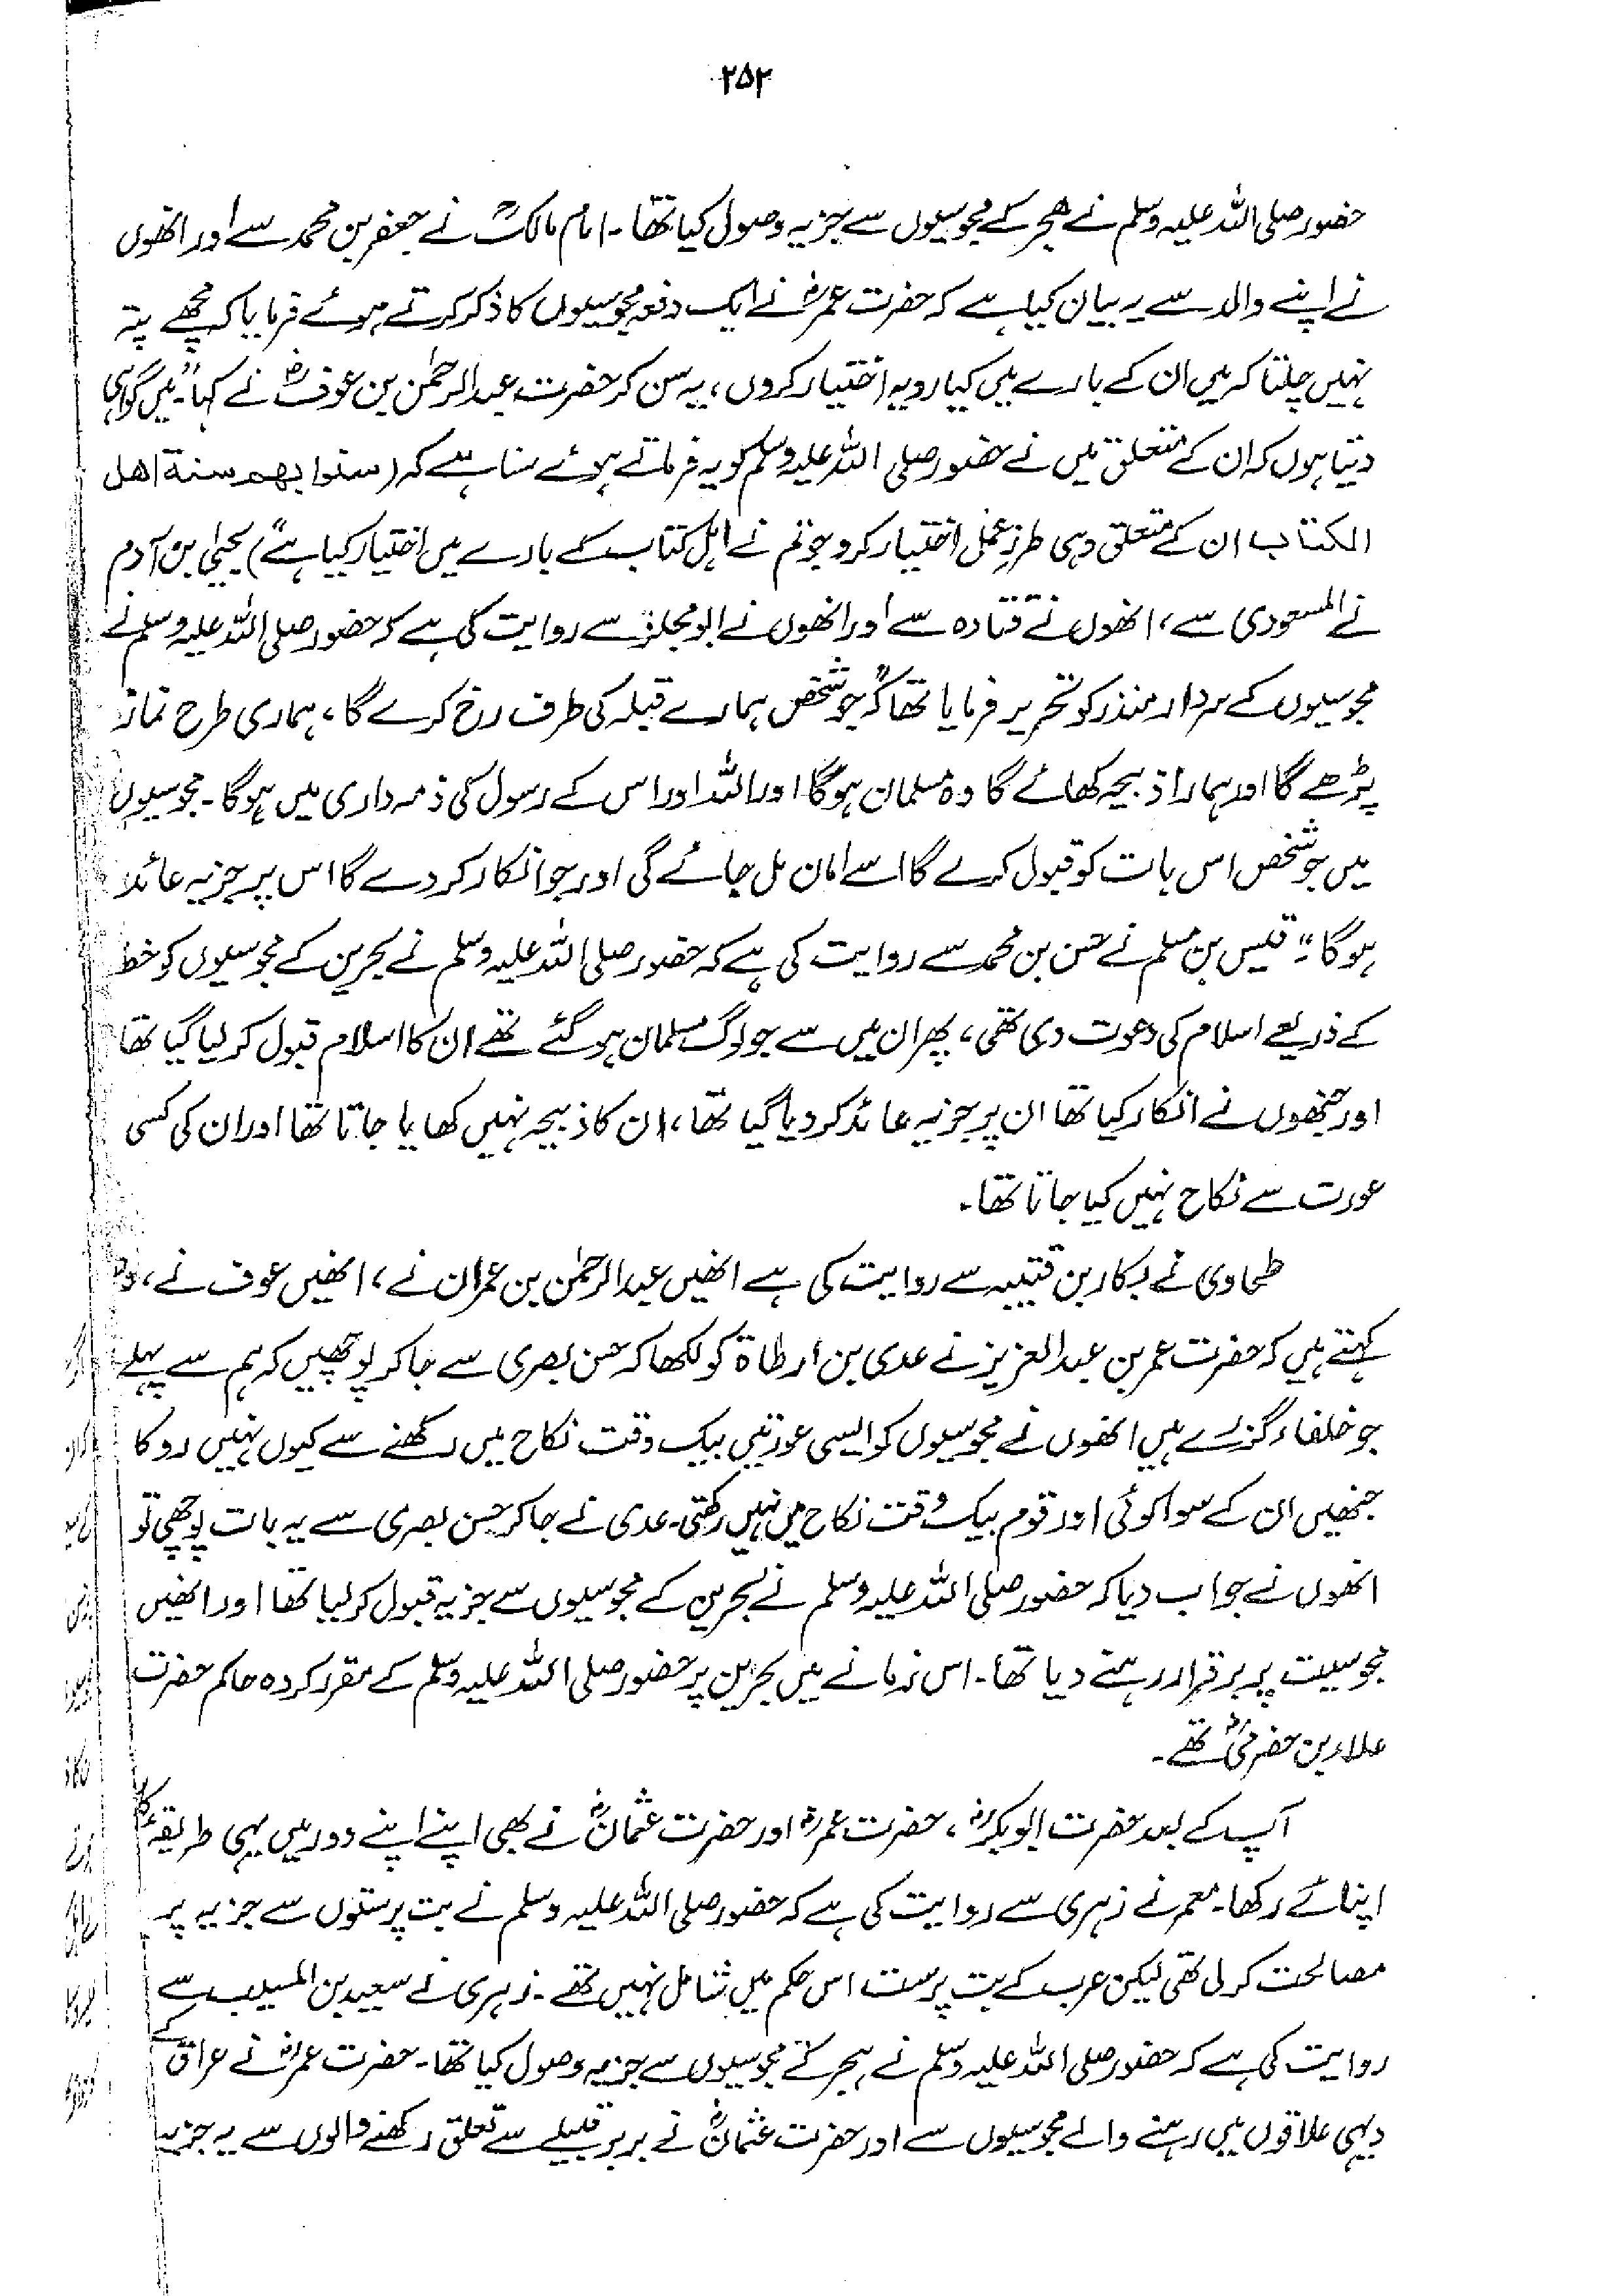 ۲۵۲
حضور صلی اللہ علیہ وسلم نے ھجر کے مجوسیوں سے جزیہ وصول کیا تھا۔ امام مالکؒ نے جعفر بن محمد سے اور انھوں
نے اپنے والد سے یہ بیان کیا ہے کہ حضرت عمرؓ نے ایک دفعہ مجوسیوں کا ذکر کرتے ہوئے فرمایا کہ مجھے پتہ
نہیں چلتا کہ میں ان کے بارے میں کیا رویہ اختیار کروں، یہ سن کر حضرت عبدالرحمٰن بن عوفؓ نے کہا "میں گواہی
دیتا ہوں کہ ان کے متعلق میں نے حضور صلی اللہ علیہ وسلم کو یہ فرماتے ہوئے سنا ہے کہ (سنوا بھم سنۃ اھل
الکتاب ان کے متعلق وہی طرزِ عمل اختیار کرو جو تم نے اہل کتاب کے بارے میں اختیار کیا ہے") یحییٰ بن آدم
نے المسعودی سے، انھوں نے قتادہ سے اور انھوں نے ابو مجلز سے روایت کی ہے کہ حضور صلی اللہ علیہ وسلم نے
مجوسیوں کے سردار منذر کو تحریر فرمایا تھا کہ "جو شخص ہمارے قبلہ کی طرف رخ کرے گا، ہماری طرح نماز
پڑھے گا اور ہمارا ذبیحہ کھائے گا وہ مسلمان ہوگا اور اللہ اور اس کے رسول کی ذمہ داری میں ہوگا۔ مجوسیوں
میں جو شخص اس بات کو قبول کرے گا اسے امان مل جائے گی اور جو انکار کر دے گا اس پر جزیہ عائد
ہوگا" قیس بن مسلم نے حسن بن محمد سے روایت کی ہے کہ حضور صلی اللہ علیہ وسلم نے بحرین کے مجوسیوں کو خط
کے ذریعے اسلام کی دعوت دی تھی، پھر ان میں سے جو لوگ مسلمان ہو گئے تھے ان کا اسلام قبول کر لیا گیا تھا
اور جنھوں نے انکار کیا تھا ان پر جزیہ عائد کر دیا گیا تھا، ان کا ذبیحہ نہیں کھایا جاتا تھا اور ان کی کسی
عورت سے نکاح نہیں کیا جاتا تھا۔
طحاوی نے بکار بن قتیبہ سے روایت کی ہے انھیں عبدالرحمٰن بن عمران نے، انھیں عوف نے، وہ
کہتے ہیں کہ حضرت عمر بن عبدالعزیز نے عدی بن ارطاۃ کو لکھا کہ حسن بصری سے جا کر پوچھیں کہ ہم سے پہلے
جو خلفاء گزرے ہیں انھوں نے مجوسیوں کو ایسی عورتیں بیک وقت نکاح میں رکھنے سے کیوں نہیں روکا
جنھیں ان کے سوا کوئی اور قوم بیک وقت نکاح میں نہیں رکھتی۔ عدی نے جا کر حسن بصری سے یہ بات پوچھی تو
انھوں نے جواب دیا کہ حضور صلی اللہ علیہ وسلم نے بحرین کے مجوسیوں سے جزیہ قبول کر لیا تھا اور انھیں
مجوسیت پر برقرار رہنے دیا تھا۔ اس زمانے میں بحرین پر حضور صلی اللہ علیہ وسلم کے مقرر کردہ حاکم حضرت
علاء بن حضرمیؓ تھے۔
آپ کے بعد حضرت ابو بکرؓ، حضرت عمرؓ اور حضرت عثمانؓ نے بھی اپنے اپنے دور میں یہی طریقہ کار
اپنائے رکھا۔ معمر نے زہری سے روایت کی ہے کہ حضور صلی اللہ علیہ وسلم نے بت پرستوں سے جزیہ پر
مصالحت کر لی تھی لیکن عرب کے بت پرست اس حکم میں شامل نہیں تھے۔ زہری نے سعید بن المسیب سے
روایت کی ہے کہ حضور صلی اللہ علیہ وسلم نے ہجر کے مجوسیوں سے جزیہ وصول کیا تھا۔ حضرت عمرؓ نے عراق کے
دیہی علاقوں میں رہنے والے مجوسیوں سے اور حضرت عثمانؓ نے بربر قبیلے سے تعلق رکھنے والوں سے یہ جزیہ